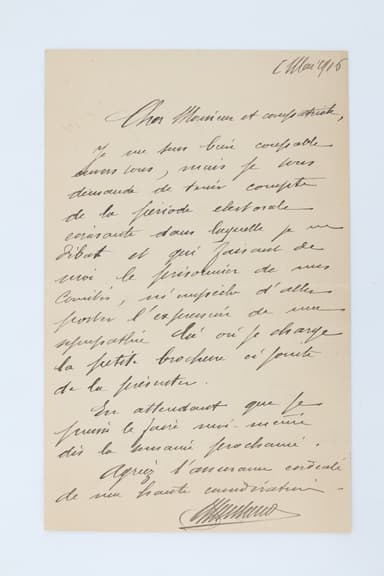 Mai 1916
Cher Monsieur et compatriote,
Je me sens bien coupable
envers vous, mais je vous
demande de tenir compte
de la période électorale
écrasante dans laquelle je me
débat et qui faisant de
moi le prisonnier de mes
Comités, m'empêche d'aller
porter l'expression de ma
sympathie là où je charge
la petite brochure ci jointe
de la présenter.
En attendant que je
puisse le faire moi-même
dès la semaine prochaine.
Agréez l'assurance cordiale
de ma haute considération